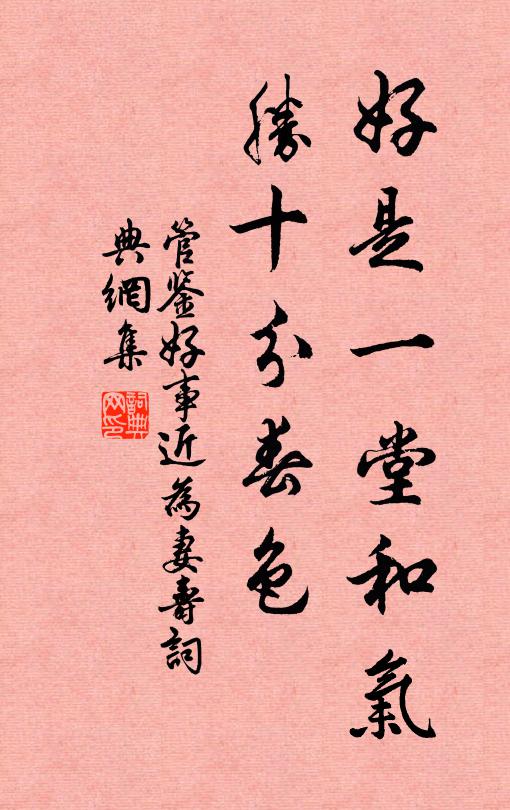 好是一堂和氣
勝十分春色
管鉴好事近為妻壽詞
典網集
詞典網印